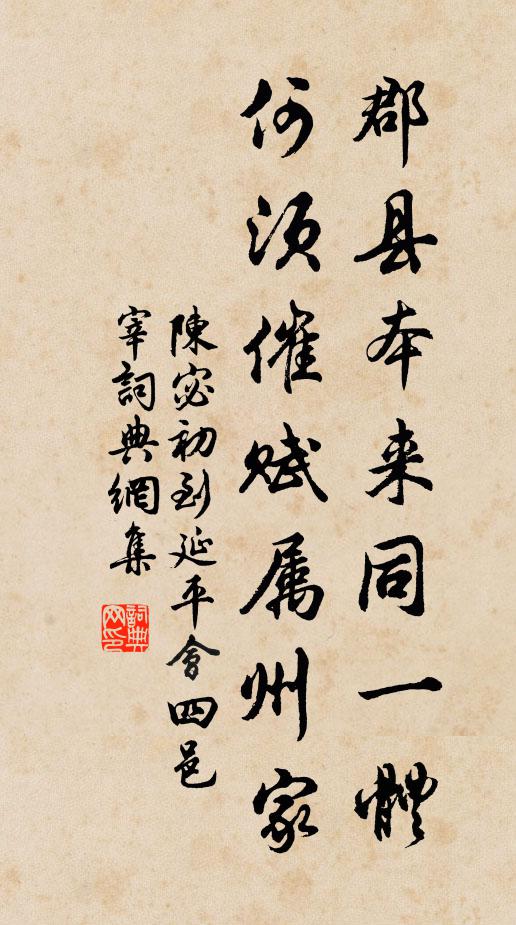 郡县本来同一體
何须催赋属州家
陳宓初到延平會四邑
宰詞典網集
詞典网印